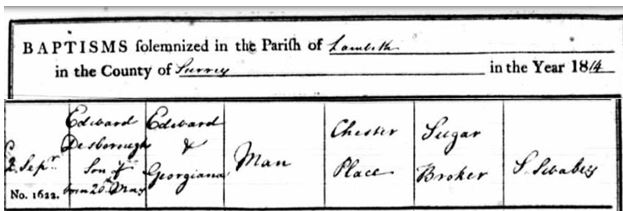 BAPTISMS solemnized in the Parish of Lambeth
in the County of Surrey in the Year 1814
2 Sepr.
No. 1622.
Edward
Desborough
Son of
born 20th May
Edward
&
Georgiana
Man
Chester
Place
Sugar
Broker
S. Swabey